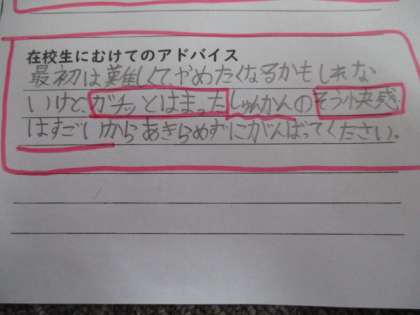 在校生にむけてのアドバイス
最初は難しくてやめたくなるかもしれな
いけど、ガチッとはまったしゅんかんのそう快感
はすごいからあきらめずにがんばってください。